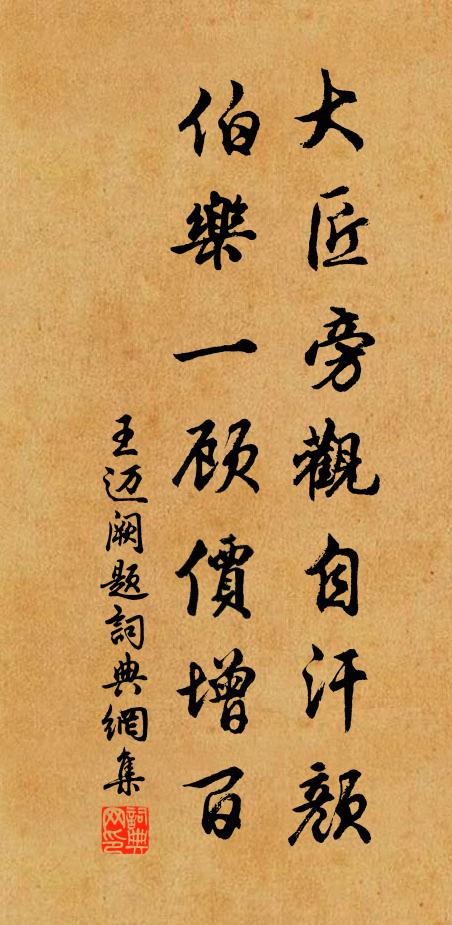 大匠旁觀自汗顔
伯樂一顾價增百
王迈阙题詞典網集
詞典网印